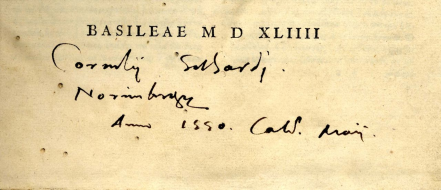 BASILEAE M D XLIIII
Cornelij
Norimbergae
Anno 1550. Cald. Maij.